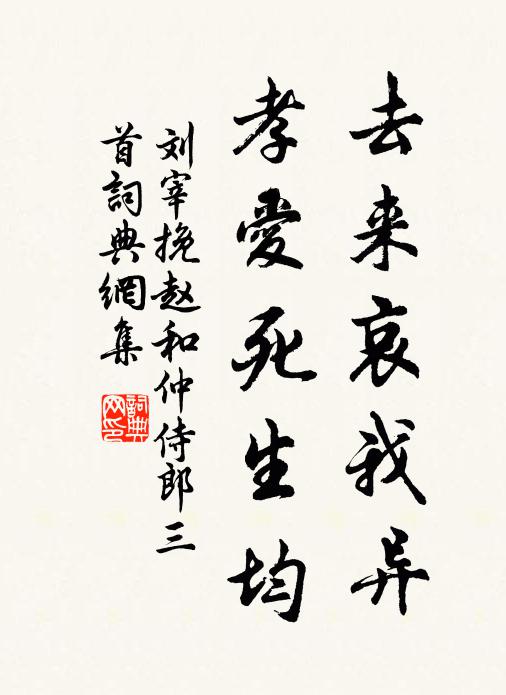 去来哀我异
孝愛死生均
刘宰挽赵和仲侍郎三
首詞典網集
詞典
网印